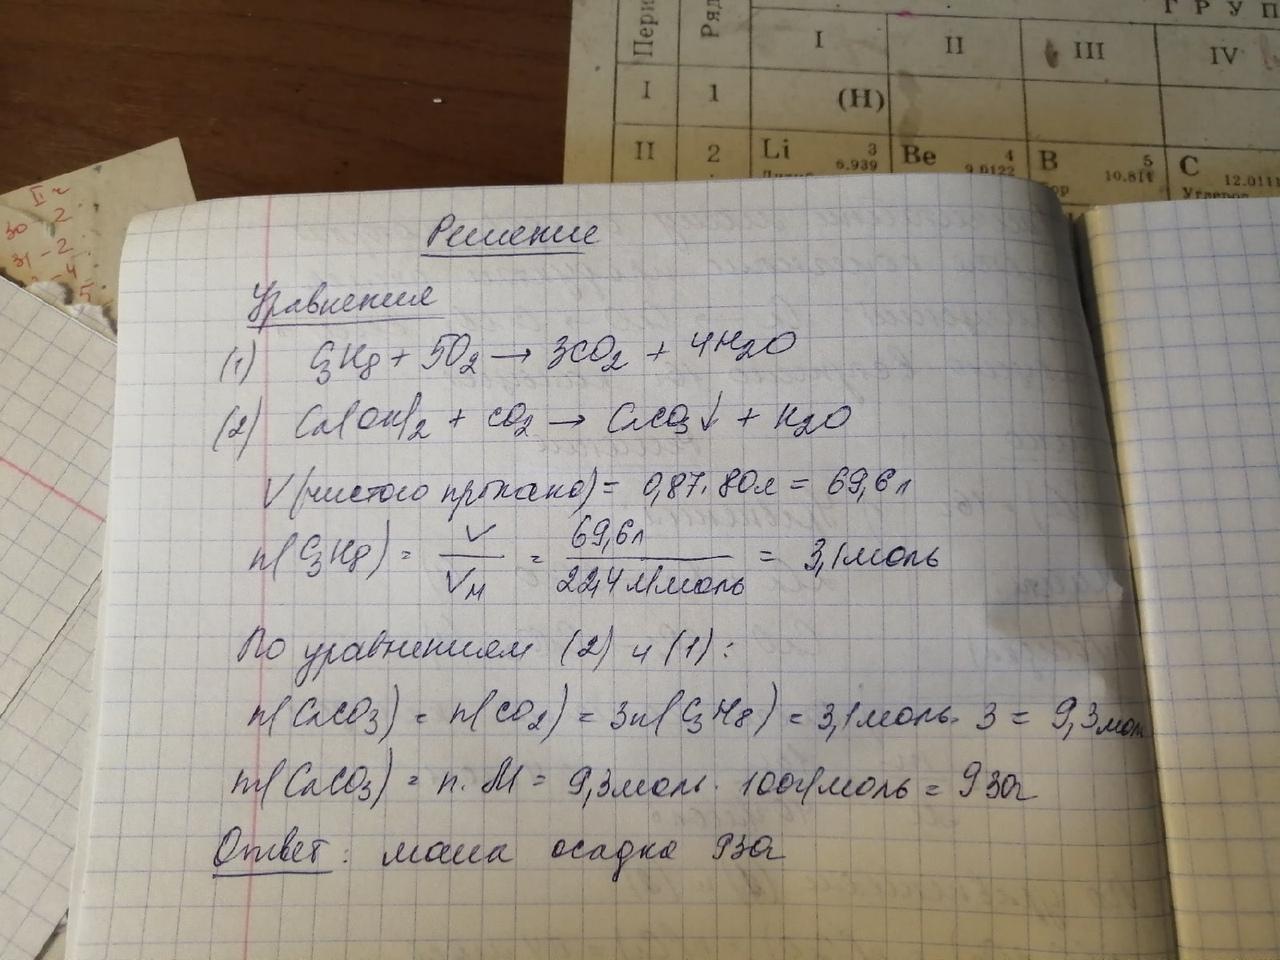 Г Р У П
Пери
Ряд
I II III IV
I 1 (H)
II 2 Li 3 6.939 Be 4 9.0122 B 5 10.811 C 12.0111
Углерод
II ч
30 2
31 - 2
- 4
5
Решение
Уравнения
(1) C3H8 + 5O2 → 3CO2 + 4H2O
(2) Ca(OH)2 + CO2 → CaCO3↓ + H2O
V(чистого пропана) = 0,87·80л = 69,6л
n(C3H8) = V/VM = 69,6л/22,4л/моль = 3,1моль
По уравнениям (2) и (1):
n(CaCO3) = n(CO2) = 3n(C3H8) = 3,1моль · 3 = 9,3мол
m(CaCO3) = n·M = 9,3моль · 100г/моль = 930г
Ответ: масса осадка 930г